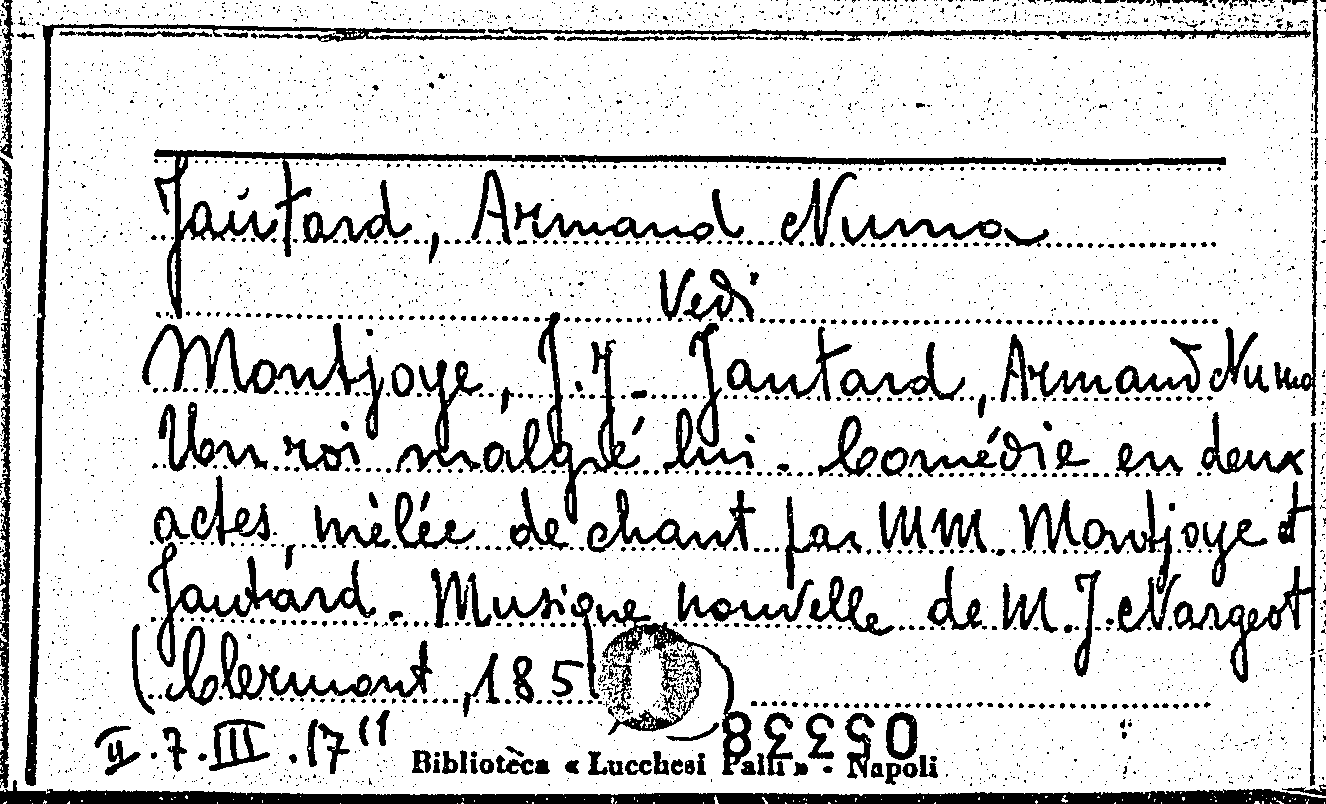 Jautard, Armand Numa
Vedi
Montjoye, J.J. - Jautard, Armand Numa
Un roi malgré lui. Comédie en deux
actes, mêlée de chant par MM. Montjoye et
Jautard. - Musique nouvelle de M. J. Nargeot
(Clermont, 185 )
II.7.III.17¹¹
05338
Biblioteca « Lucchesi Palli » - Napoli